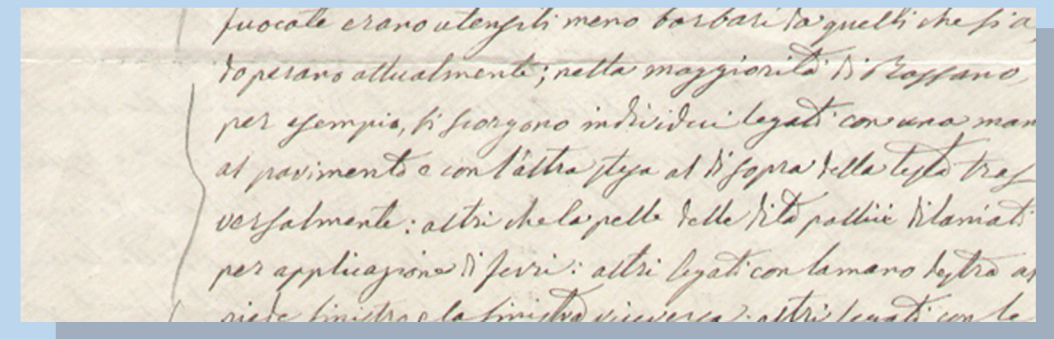 fuocate erano utensili meno barbari da quelli che si a
doperano attualmente; nella maggiorità di Rossano,
per esempio, si scorgono individui legati con una man
al pavimento e con l'altra stesa al disopra della testa tras
versalmente: altri che la pelle delle dita pollici dilaniati
per applicazione di ferri: altri legati con la mano destra al
piede sinistro e la sinistra viceversa: altri legati con le